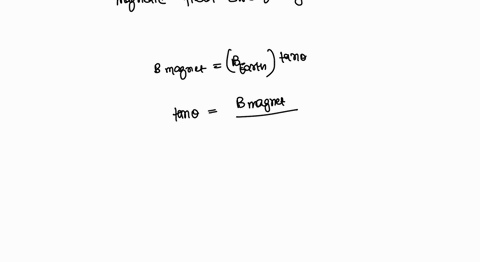 B magnet = (B Earth) tanθ
tanθ = B magnet